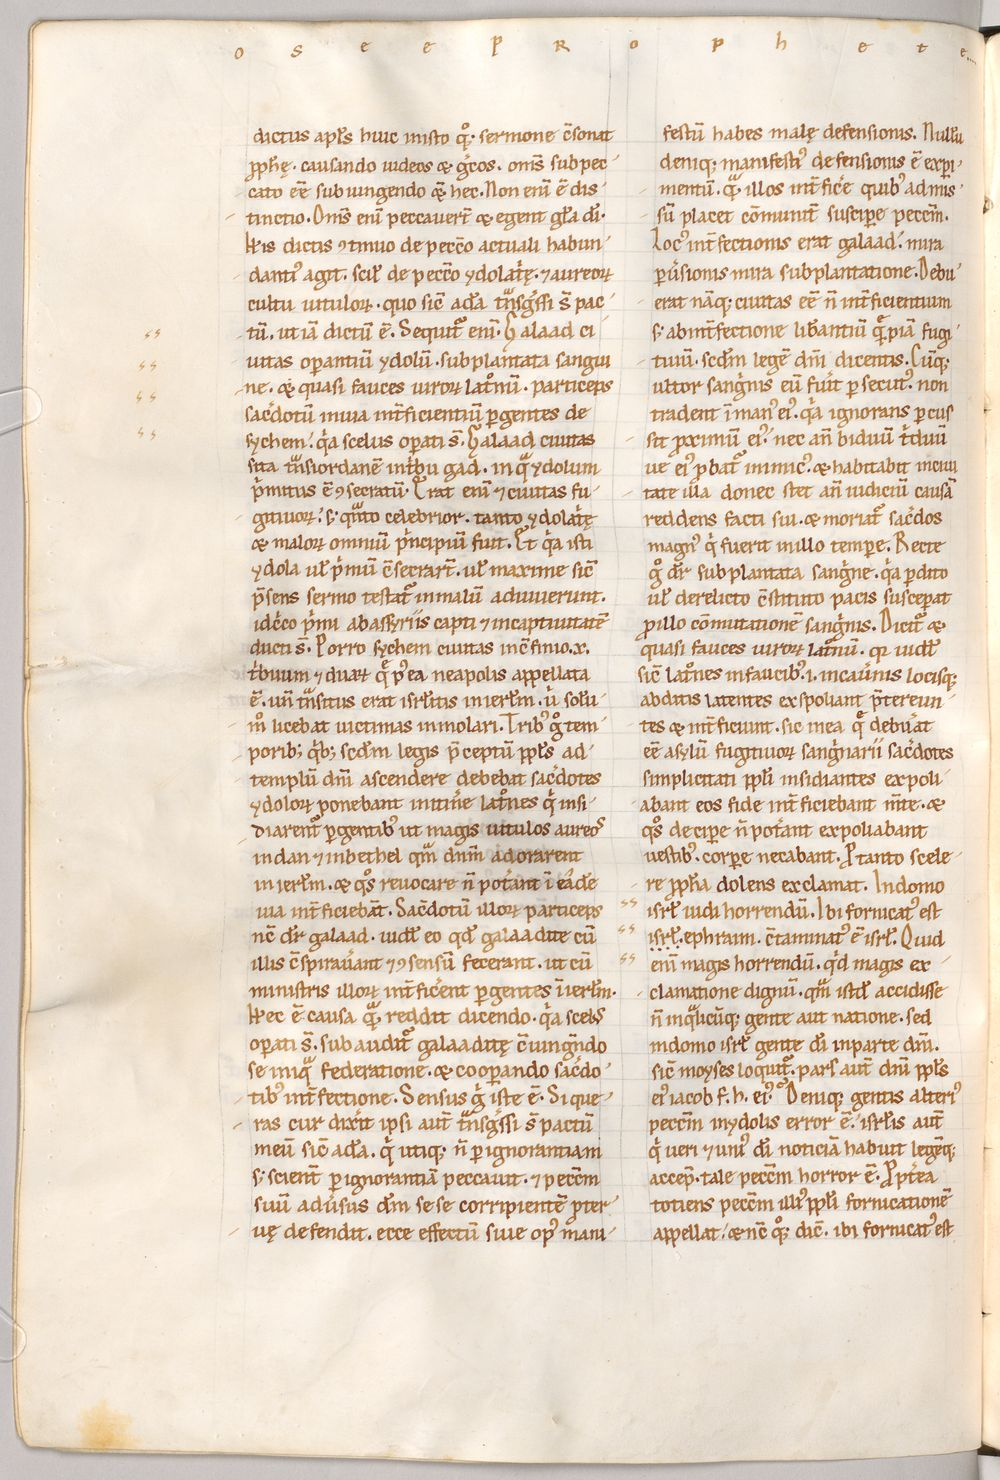 o s e e p R o p h e t e
dictus apl̄s huic inisto q̊ sermone c̄sonat
ꝓph̄ę. causando iudeos & gͥcos. om̄s sub pec-
cato eē subiungendo q̄ hec. Non eni̅ ē dis-
tinctio. Om̄s eni̅ peccaver̄t & egent gl̄a dī.
His dictis ꝯtinuo de pecc̄o actuali habun-
dantiꝰ agit. scil̄ de pecc̄o ydolatͥę. ⁊ aureoꝝ
cultu vituloꝝ. quo sic̄ adā tͣnsgͥssi s̄ pac-
tū. ut iā dictū ē. Sequitͣ eni̅. Galaad ci-
vitas oꝑantiū ydolū. subplantata sangui-
ne. & quasi fauces viroꝝ latͦnū. particeps
sacͥdotū in via int̄ficientiū ꝑgentes de
sychem. qͥa scelus oꝑati s̄. Galaad civitas
sita tͣnsiordanē intͥbu gad. in qͣ ydolum
pͥmitus ē ꝯsecratū. Erat eni̅ ⁊ civitas fu-
gitivoꝝ. s; qͣnto celebrior. tanto ydolatͥę
& maloꝝ omniū pͥncipiū fuit. Et qͥa isti
ydola ul̄ pͥmū c̄secrar̄t. ul̄ maxime sic̄
p̄sens sermo testatͣ in malū adiuverunt.
idcͥco pͥmi ab assyriis capti ⁊ in captivitatē
ducti s̄. Porro sychem civitas in c̄finio .x.
tͥbuum ⁊ duaꝝ q̄ pꝰea neapolis appellata
ē. un̄ tͣnsitus erat isrl̄itis in ierl̄m. u̇ solu-
mͦ licebat victimas inmolari. Tribꝰ gͦ tem-
porib; qͥb; scd̄m legis p̄ceptū ppl̄s ad
templū dn̄i ascendere debebat sacͥdotes
ydoloꝝ ponebant in itinͥe latͦnes qͥ insi-
diarentͣ ꝑgentibꝰ ut magis vitulos aureoˢ
in dan ⁊ in bethel qͣm dn̄m adorarent
in ierl̄m. & qͦs revocare n̄ potͥant ī eādē
via int̄ficiebāt. Sac̄dotū illoꝝ particeps
nc̄ dr̄ galaad. vidl̄ eo qd̄ galaadite cū
illis c̄spiravͥant ⁊ ꝯsensū fecerant. ut cū
ministris illoꝝ int̄ficͥent ꝑgentes ī ierl̄m.
Hec ē causa qͣ reddit dicendo. qͥa scelˢ
oꝑati s̄. subauditͣ galaaditę c̄iungn̄do
se iniqͣ federatione. & cooꝑando sacͥdo-
tibꝰ int̄fectione. Sensus gͦ iste ē. Si que-
ras cur dixͥit ipsi aut̄ tͣnsgͥssi s̄ pactū
meū sic̄ adā. qͥ utiq; n̄ ꝑ ignorantiam
s; scient̄ ꝑ ignorantiā peccavit. ⁊ pecc̄m
suū advͥsus dm̄ sese corripientē ꝓter-
vę defendit. ecce effectū sive opꝰ mani-
festū habes malę defensionis. Nulliͥ
deniq; manifestiꝰ defensionis ē experi-
mentū. qͣ illos int̄ficͥe quibꝰ admis-
sū placet cōmunit̄ suscipe pecc̄m.
Locꝰ int̄fectionis erat galaad. mira
ꝑvͥsionis mira subplantatione. Debu-
erat nāq; civitas eē n̄ int̄ficientium
s; ab int̄fectione libͥantiū qͣꝓpiā fugi-
tivū. scd̄m legē dn̄i dicentis. Cūq;
ultor sangͥnis eū fuͥit ꝑsecutꝰ. non
tradent ī manꝰ eiꝰ. qͥa ignorans ꝑcus-
sit ꝓximū eiꝰ. nec an̄ biduū tͥduū
ve eiꝰ ꝓbatͣ inimicꝰ. & habitabit in civi-
tate illa donec stet an̄ iudiciū causā
reddens facti sui. & moriatͣ sacͥdos
magnꝰ qͥ fuerit in illo tempe. Recte
gͦ dr̄ subplantata sangͥne. qͥa ꝑdito
ul̄ derelicto c̄stituto pacis susceperat
ꝓ illo cōmutationē sangͥnis. Dicitͣ &
quasi fauces viroꝝ latͦnū. qr vidl̄
sic̄ latͦnes in faucibꝰ. i. in cavͥnis locisq;
abditis latentes exspoliant p̄tereun-
tes & int̄ficiunt. sic in ea q̄ debuͥat
eē asylū fugitivoꝝ sangͥnarii sacͥdotes
simplicitati ppl̄i insidiantes expoli-
abant eos fide int̄ficiebant m̄te. &
qͦs decipe n̄ potͥant expoliabant
vestibꝰ. corpe necabant. P tanto scele-
re ꝓph̄a dolens exclamat. In domo
isrl̄ vidi horrendū. Ibi fornicatꝰ est
isrl̄. ephraim. c̄taminatꝰ ē isrl̄. Quid
eni̅ magis horrendū. qͥd magis ex-
clamatione dignū. qͣm istd̄ accidisse
n̄ in qͣlicūq; gente aut natione. sed
in domo isrl̄ gente dī in parte dn̄i.
sic̄ moyses loquitͣ. parsͣ aut̄ dn̄i ppl̄s
eiꝰ iacob f. h. eiꝰ. Deniq; gentis alteriꝰ
pecc̄m in ydolis error ē. isrl̄is aut̄
qͥ veri ⁊ uniꝰ dī noticiā habuit legēq;
accep̄. tale pecc̄m horror ē. Ppt̄ea
totiens pecc̄m illiꝰ ppl̄i fornicationē
appellat. & nc̄ qͦq; dic̄. ibi fornicatꝰ est